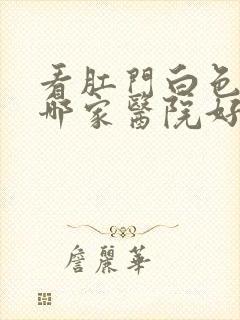 看肛門白色
哪家醫院好
詹麗華